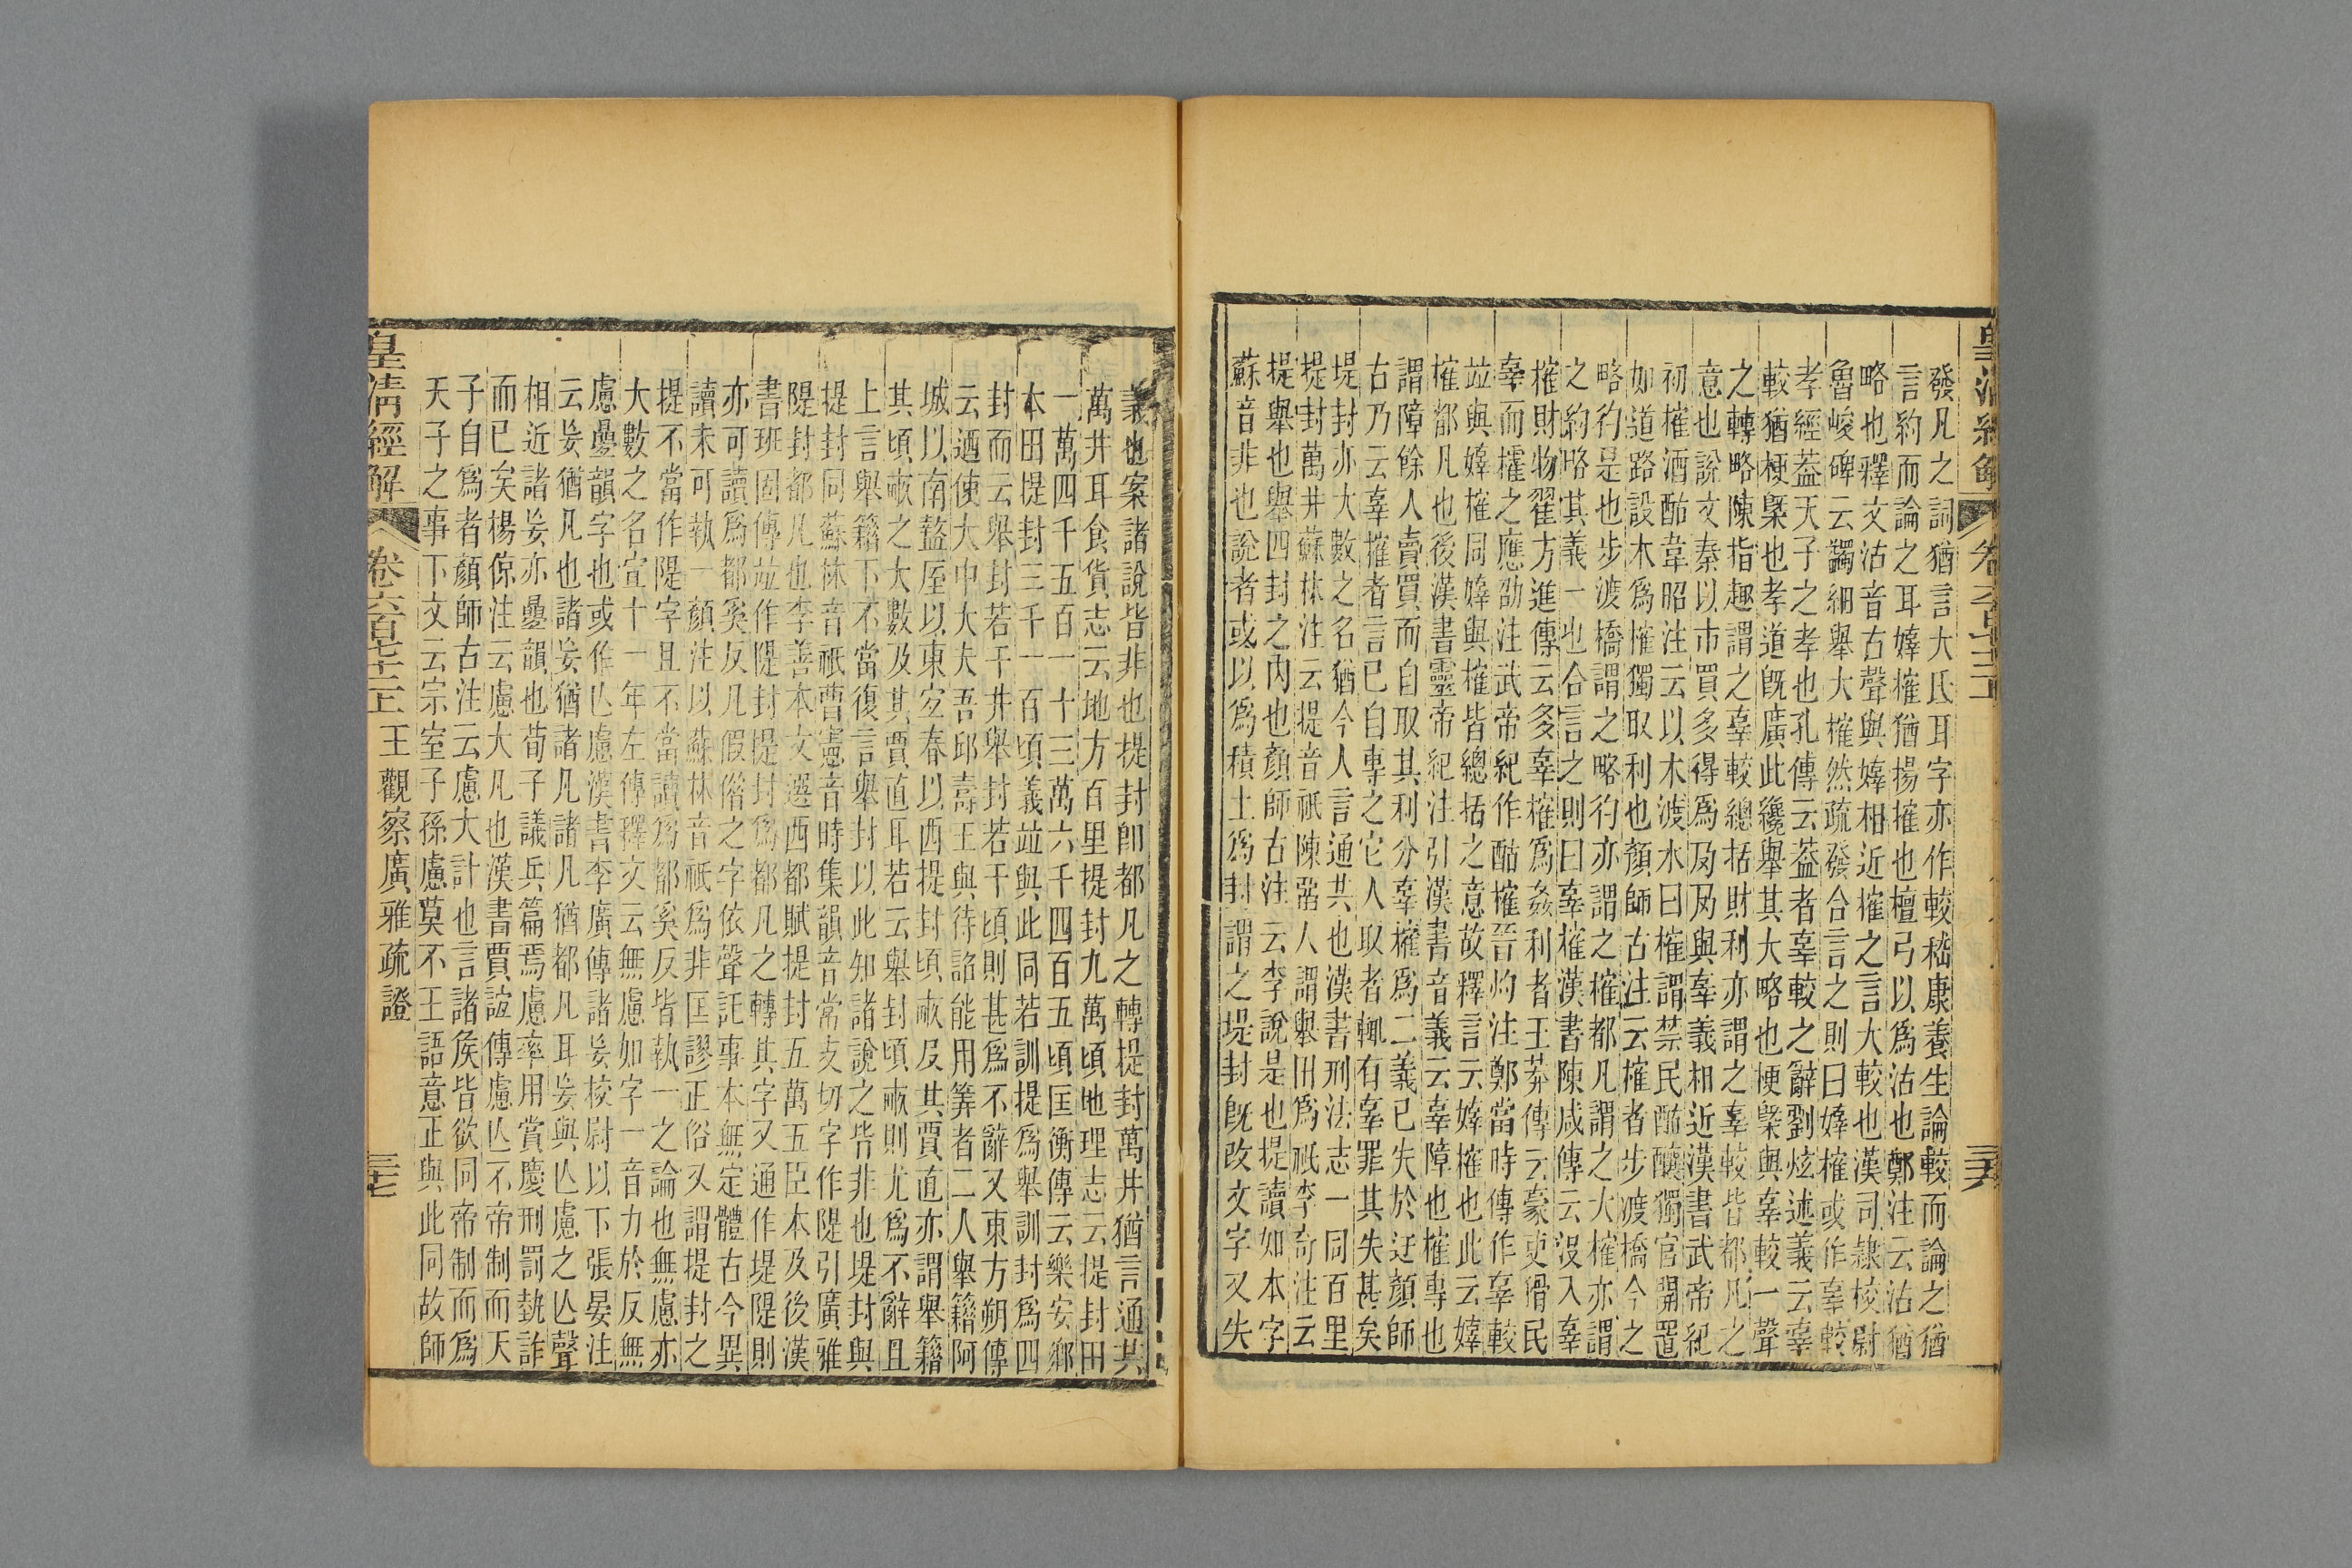 皇清經解
發凡之詞猶言大氐耳字亦作較嵇康養生論較而論之猶
言約而論之耳嫴榷猶揚搉也檀弓以爲沽也鄭注云沽猶
略也釋文沽音古聲與嫴相近搉之言大較也漢司隷校尉
魯峻碑云蠲細舉大榷然疏發合言之則曰嫴榷或作辜較
孝經葢天子之孝也孔傳云葢者辜較之辭劉炫述義云辜
較猶梗槩也孝道旣廣此纔舉其大略也梗槩與辜較一聲
之轉略陳指趣謂之辜較總括財利亦謂之辜較皆都凡之
意也說文秦以市買多得爲夃夃與辜義相近漢書武帝紀
初榷酒酤韋昭注云以木渡水曰榷謂禁民酤釀獨官開置
如道路設木爲榷獨取利也顏師古注云榷者步渡橋今之
略彴是也步渡橋謂之略彴亦謂之榷都凡謂之大榷亦謂
之約略其義一也合言之則曰辜榷漢書陳咸傳云沒入辜
榷財物翟方進傳云多辜榷爲姦利者王莽傳云豪吏猾民
辜而攉之應劭注武帝紀作酤榷晉灼注鄭當時傳作辜較
竝與嫴榷同嫴與榷皆總括之意故釋言云嫴榷也此云嫴
榷都凡也後漢書靈帝紀注引漢書音義云辜障也榷專也
謂障餘人賣買而自取其利分辜榷爲二義已失於迂顏師
古乃云辜搉者言已自專之它人取者輒有辜罪其失甚矣
堤封亦大數之名猶今人言通共也漢書刑法志一同百里
提封萬井蘇林注云提音祇陳人謂舉田爲祇李奇注云
提舉也舉四封之內也顏師古注云李說是也提讀如本字
蘇音非也說者或以爲積土爲封謂之堤封旣改文字又失
義也案諸說皆非也提封卽都凡之轉提封萬井猶言通共
萬井耳食貨志云地方百里提封九萬頃地理志云提封田
一萬四千五百一十三萬六千四百五頃匡衡傳云樂安鄉
本田提封三千一百頃義竝與此同若訓提爲舉訓封爲四
封而云舉封若干井舉封若干頃則甚爲不辭又東方朔傳
云迺使大中大夫吾邱壽王與待詔能用筭者二人舉籍阿
城以南盩厔以東宜春以西提封頃畝及其賈直亦謂舉籍
其頃畝之大數及其賈直耳若云舉封頃畝則尤爲不辭且
上言舉籍下不當復言舉封以此知諸說之皆非也堤封與
提封同蘇林音祇曹憲音時集韻音常支切字作隄引廣雅
隄封都凡也李善本文選西都賦提封五萬五臣本及後漢
書班固傳竝作隄封提封爲都凡之轉其字又通作堤隄則
亦可讀爲都奚反凡假借之字依聲託事本無定體古今異
讀未可執一顏注以蘇林音祇爲非匡謬正俗又謂提封之
提不當作隄字且不當讀爲都奚反皆執一之論也無慮亦
大數之名宣十一年左傳釋文云無慮如字一音力於反無
慮疊韻字也或作亾慮漢書李廣傳諸妄校尉以下張晏注
云妄猶凡也諸妄猶諸凡諸凡猶都凡耳妄與亾慮之亾聲
相近諸妄亦疊韻也荀子議兵篇焉慮率用賞慶刑罰埶詐
而已矣楊倞注云慮大凡也漢書賈誼傳慮亾不帝制而天
子自爲者顏師古注云慮大計也言諸矦皆欲同帝制而爲
天子之事下文云宗室子孫慮莫不王語意正與此同故師
皇清經解 卷六百六十七上 王觀察廣雅疏證 三七